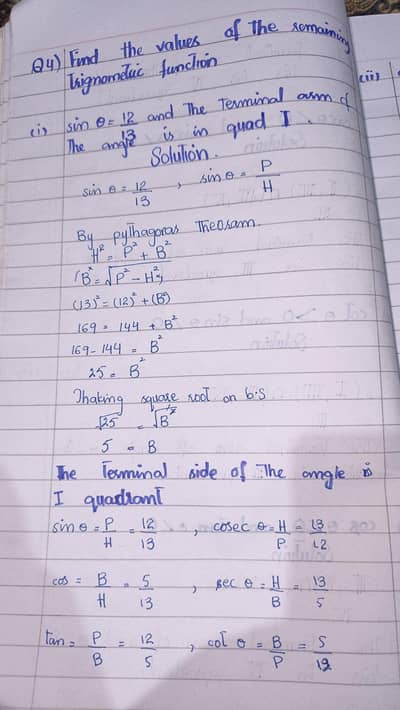 Q4) Find the values of The remaining
Trignometric function
(i) sin θ = 12/13 and The Terminal arm of
The angle is in quad I.
Solution.
sin θ = 12/13 , sin θ = P/H
By pythagoras Theoram.
H² = P² + B²
(13)² = (12)² + (B²)
169 = 144 + B²
169 - 144 = B²
25 = B²
Thaking square root on b.s
√25 = √B²
5 = B
The Terminal side of The angle is
I quadrant
sin θ = P/H = 12/13 , cosec θ = H/P = 13/12
cos = B/H = 5/13 , sec θ = H/B = 13/5
tan = P/B = 12/5 , cot θ = B/P = 5/12
(ii)